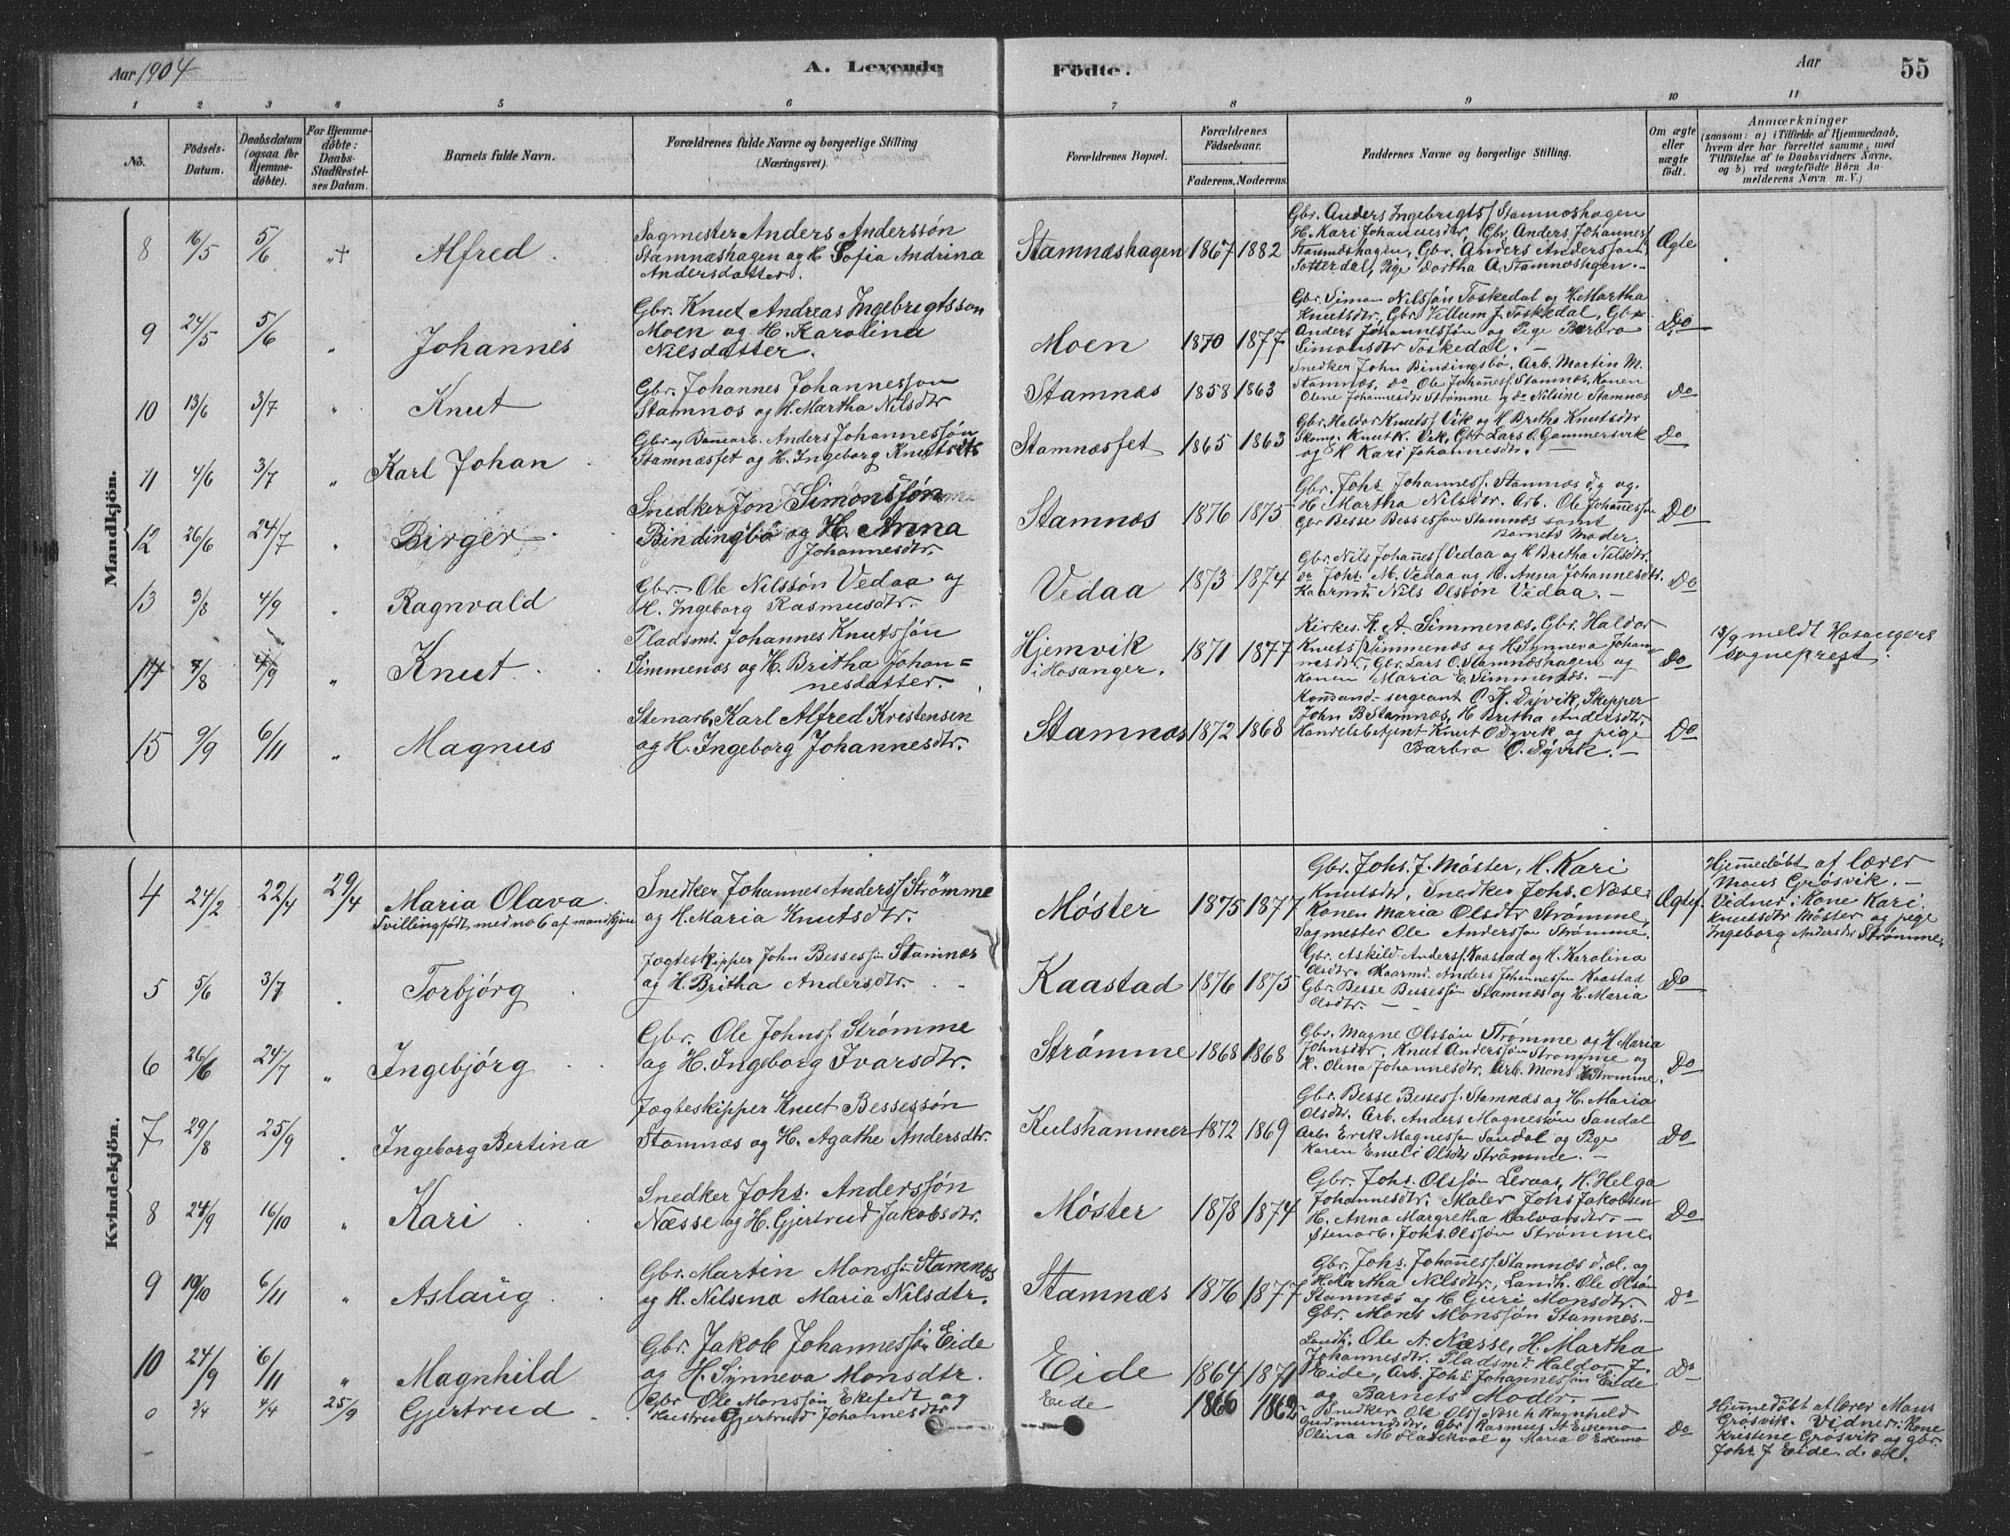 Aar 1904
A. Levende
Födte.
Aar
55
1 2 3 4 5 6 7 8 9 10 11
No.
Födsels-
Datum.
Daabsdatum
(ogsaa for
Hjemme-
døbte).
For Hjemme-
døbte:
Daabs-
Stadfæstel-
ses Datum.
Barnets fulde Navn.
Forældrenes fulde Navne og borgerlige Stilling
(Næringsvei).
Forældrenes Bopæl.
Forældrenes
Födselsaar.
Faderens. Moderens.
Faddernes Navne og borgerlige Stilling.
Om ægte
eller
uægte
født.
Anmærkninger
(saasom: a) i Tilfælde af Hjemmedaab,
hvem der har forrettet samme, med
Tilföielse af to Daabsvidners Navne,
og b) ved uægtefödte Börn An-
melderens Navn m. V.)
Mandkjön.
8 16/5 5/6 Alfred
Sagmester Anders Anderssön
Stamnæshagen og H. Sofia Andrina
Andersdatter.
Stamnæshagen 1867 1882
Gbr. Anders Ingebrigts/ Stamnæshagen
H. Kari Johannesdtr, Gbr. Anders Johannes/
Stamnæshagen, Gbr. Anders Anderssøn
Sotterdal, Pige Dortha A. Stamnæshagen.
Ægte
9 24/5 5/6 " Johannes
Gbr. Knut Andreas Ingebrigtsson
Moen og H. Karolina
Nilsdatter.
Moen 1870 1877
Gbr. Simon Nilssøn Toskedal og H. Martha
Knutsdtr, Gbr. Villum J. Toskedal, Gbr
Anders Johannessøn og Pige Barbro
Simonsdtr Toskedal.
Do
10 13/6 3/7 " Knut
Gbr. Johannes Johannesson
Stamnæs og H. Martha Nilsdtr
Stamnæs 1858 1863
Snedker John Bindingsbø, Arb. Martin M.
Stamnæs, do Ole Johannes/ Stamnæs, Konen
Oline Johannesdtr Strømme og do Nilsine Stamnæs
Do
11 4/6 3/7 " Karl Johan
Gbr og Banearb. Anders Johannessøn
Stamnæsfet og H. Ingeborg Knutsdtr
Stamnæsfet 1865 1863
Gbr. Haldor Knuts/ Vik og H. Britha Knutsdtr
Skom. Knut K. Vik, Gbr Lars O. Gammersvik
og H Kari Johannesdtr.
Do
12 26/6 24/7 " Birger
Snedker Jon Simonssøn
Bindingbø og H. Anna
Johannesdtr.
Stamnæs 1876 1875
Gbr. Johs Johannes/ Stamnæs d.y og
H Martha Nilsdtr. Arb. Ole Johannesson
Gbr Besse Bessesson Stamnæs samt
Barnets Moder.
Do
13 3/8 4/9 " Ragnvald
Gbr. Ole Nilssön Vedaa og
H. Ingeborg Rasmusdtr.
Vedaa 1873 1874
Gbr. Nils Johannes/ Vedaa og H Bretha Nilsdtr.
do Johs. M. Vedaa og H. Anna Johannesdtr.
Kaarmd. Nils Olsson Vedaa.
Do
14 7/8 4/9 " Knut
Pladsmd. Johannes Knutssøn
Simmenæs og H. Britha Johan=
nesdatter.
Hjemvik
i Hosanger. 1871 1877
Kirkes. K. A. Simmenæs, Gbr. Haldor
Knuts/ Simmenæs og H. Synneva Johan-
nesdtr, Gbr. Lars O. Stamnæshagen og
Konen Maria E. Simmenæs.
Do
13/9 meldt Hosangers
Sogneprest.
15 9/9 6/11 " Magnus
Stenarb. Karl Alfred Kristensen
og H. Ingeborg Johannesdtr.
Stamnæs 1872 1868
Komand-sergeant O. K. Dyvik, Skipper
John B Stamnæs, H Britha Andersdtr,
Handelsbetjent Knut O Dyvik og pige
Barbra O. Dyvik.
Do
Kvindekjön.
4 24/2 22/4 29/4 Maria Olava
Tvilling født med no 6 af mandkjøn
Snedker Johannes Anders/ Strømme
og H. Maria Knutsdtr.
Møster 1875 1877
Gbr. Johs. J. Møster, H. Kari
Knutsdtr, Snedker Johs. Næse
Konen Maria Olsdtr Strømme,
Sagmester Ole Andersson Strømme.
Ægtef.
Hjemmedøbt af lærer
Mons Grøsvik.
Vidner: Kone Kari
Knutsdtr Møster og pige
Ingeborg Andersdtr Strømme.
5 5/6 3/7 " Torbjörg
Jægteskipper John Bessessøn Stamnæs
og H. Britha Andersdtr.
Kaastad 1876 1875
Gbr. Askild Anders/ Kaastad og H. Karolina
Olsdtr. Kaarmd. Anders Johannessøn Kaastad
Gbr. Besse Bessesøn Stamnæs og H. Maria
Olsdtr.
Do
6 26/6 24/7 " Ingebjörg
Gbr. Ole Johns/ Strømme
og H. Ingeborg Ivarsdtr.
Strømme 1868 1868
Gbr. Magne Olssøn Strømme og H Maria
Johnsdtr. Knut Anderssøn Strømme og
H. Olina Johannesdtr. Arb. Mons K Strømme.
Do
7 29/8 25/9 Ingeborg Bertina
Jægteskipper Knut Bessesøn
Stamnæs og H. Agathe Andersdtr.
Kulshammer 1872 1869
Gbr. Besse Besses/ Stamnæs og H. Maria
Olsdtr. Arb. Anders Magnesøn Sandal
Arb. Erik Magnessøn Sandal og Pige
Karen Emeli Olsdtr Strømme.
Do
8 24/9 16/10 " Kari
Snedker Johs. Anderssøn
Næsse og H. Gjertrud Jakobsdtr.
Møster 1878 1874
Gbr. Johs. Olssøn Leraas, H. Helga
Johannesdtr. Maler Johs Jakobsen
H. Anna Margretha Halvorsdtr.
Stenarb. Johs. Olssøn Strømme.
Do
9 19/10 6/11 " Aslaug
Gbr. Martin Monssøn Stamnæs
og H. Nilsina Maria Nilsdtr.
Stamnæs 1876 1877
Gbr. Johs. Johannes/ Stamnæs d.e. og
H Martha Nilsdtr., Landh. Ole Olsøn
Stamnæs og H Guri Monsdtr.
Gbr. Mons Monssøn Stamnæs.
Do
10 24/9 6/11 " Magnhild
Gbr. Jakob Johannessøn Eide
og H. Synneva Monsdtr.
Eide 1864 1871
Landh. Ole A. Næsse, H. Martha
Johannesdtr. Pladsmd. Haldor J.
Eide, Arb. Johs Johannessøn Eide
og Barnets Moder.
Do
0 3/4 4/4 25/9 Gjertrud
Gbr Ole Monssøn Ekefet og
Hustru Gjertrud Johannesdtr
Eide 1866 1862
Snedker Ole Ols/ Næse h Ragnhild
Gudmundsdtr, Gbr Rasmus A Ekemo
Olina M og Maria O Ekemo
Do
Hjemmedøbt af lærer Mons
Grøsvik. Vidner: Kone
Kristine Grøsvik og gbr.
Johs J Eide d. æl.